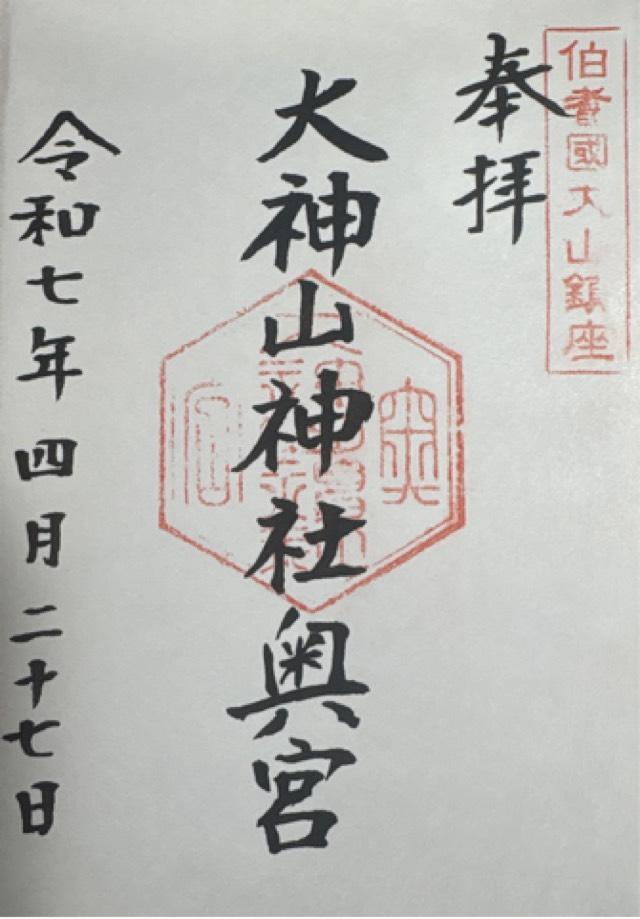 伯耆國大山鎮座
奉拝
大神山神社奥宮
令和七年四月二十七日